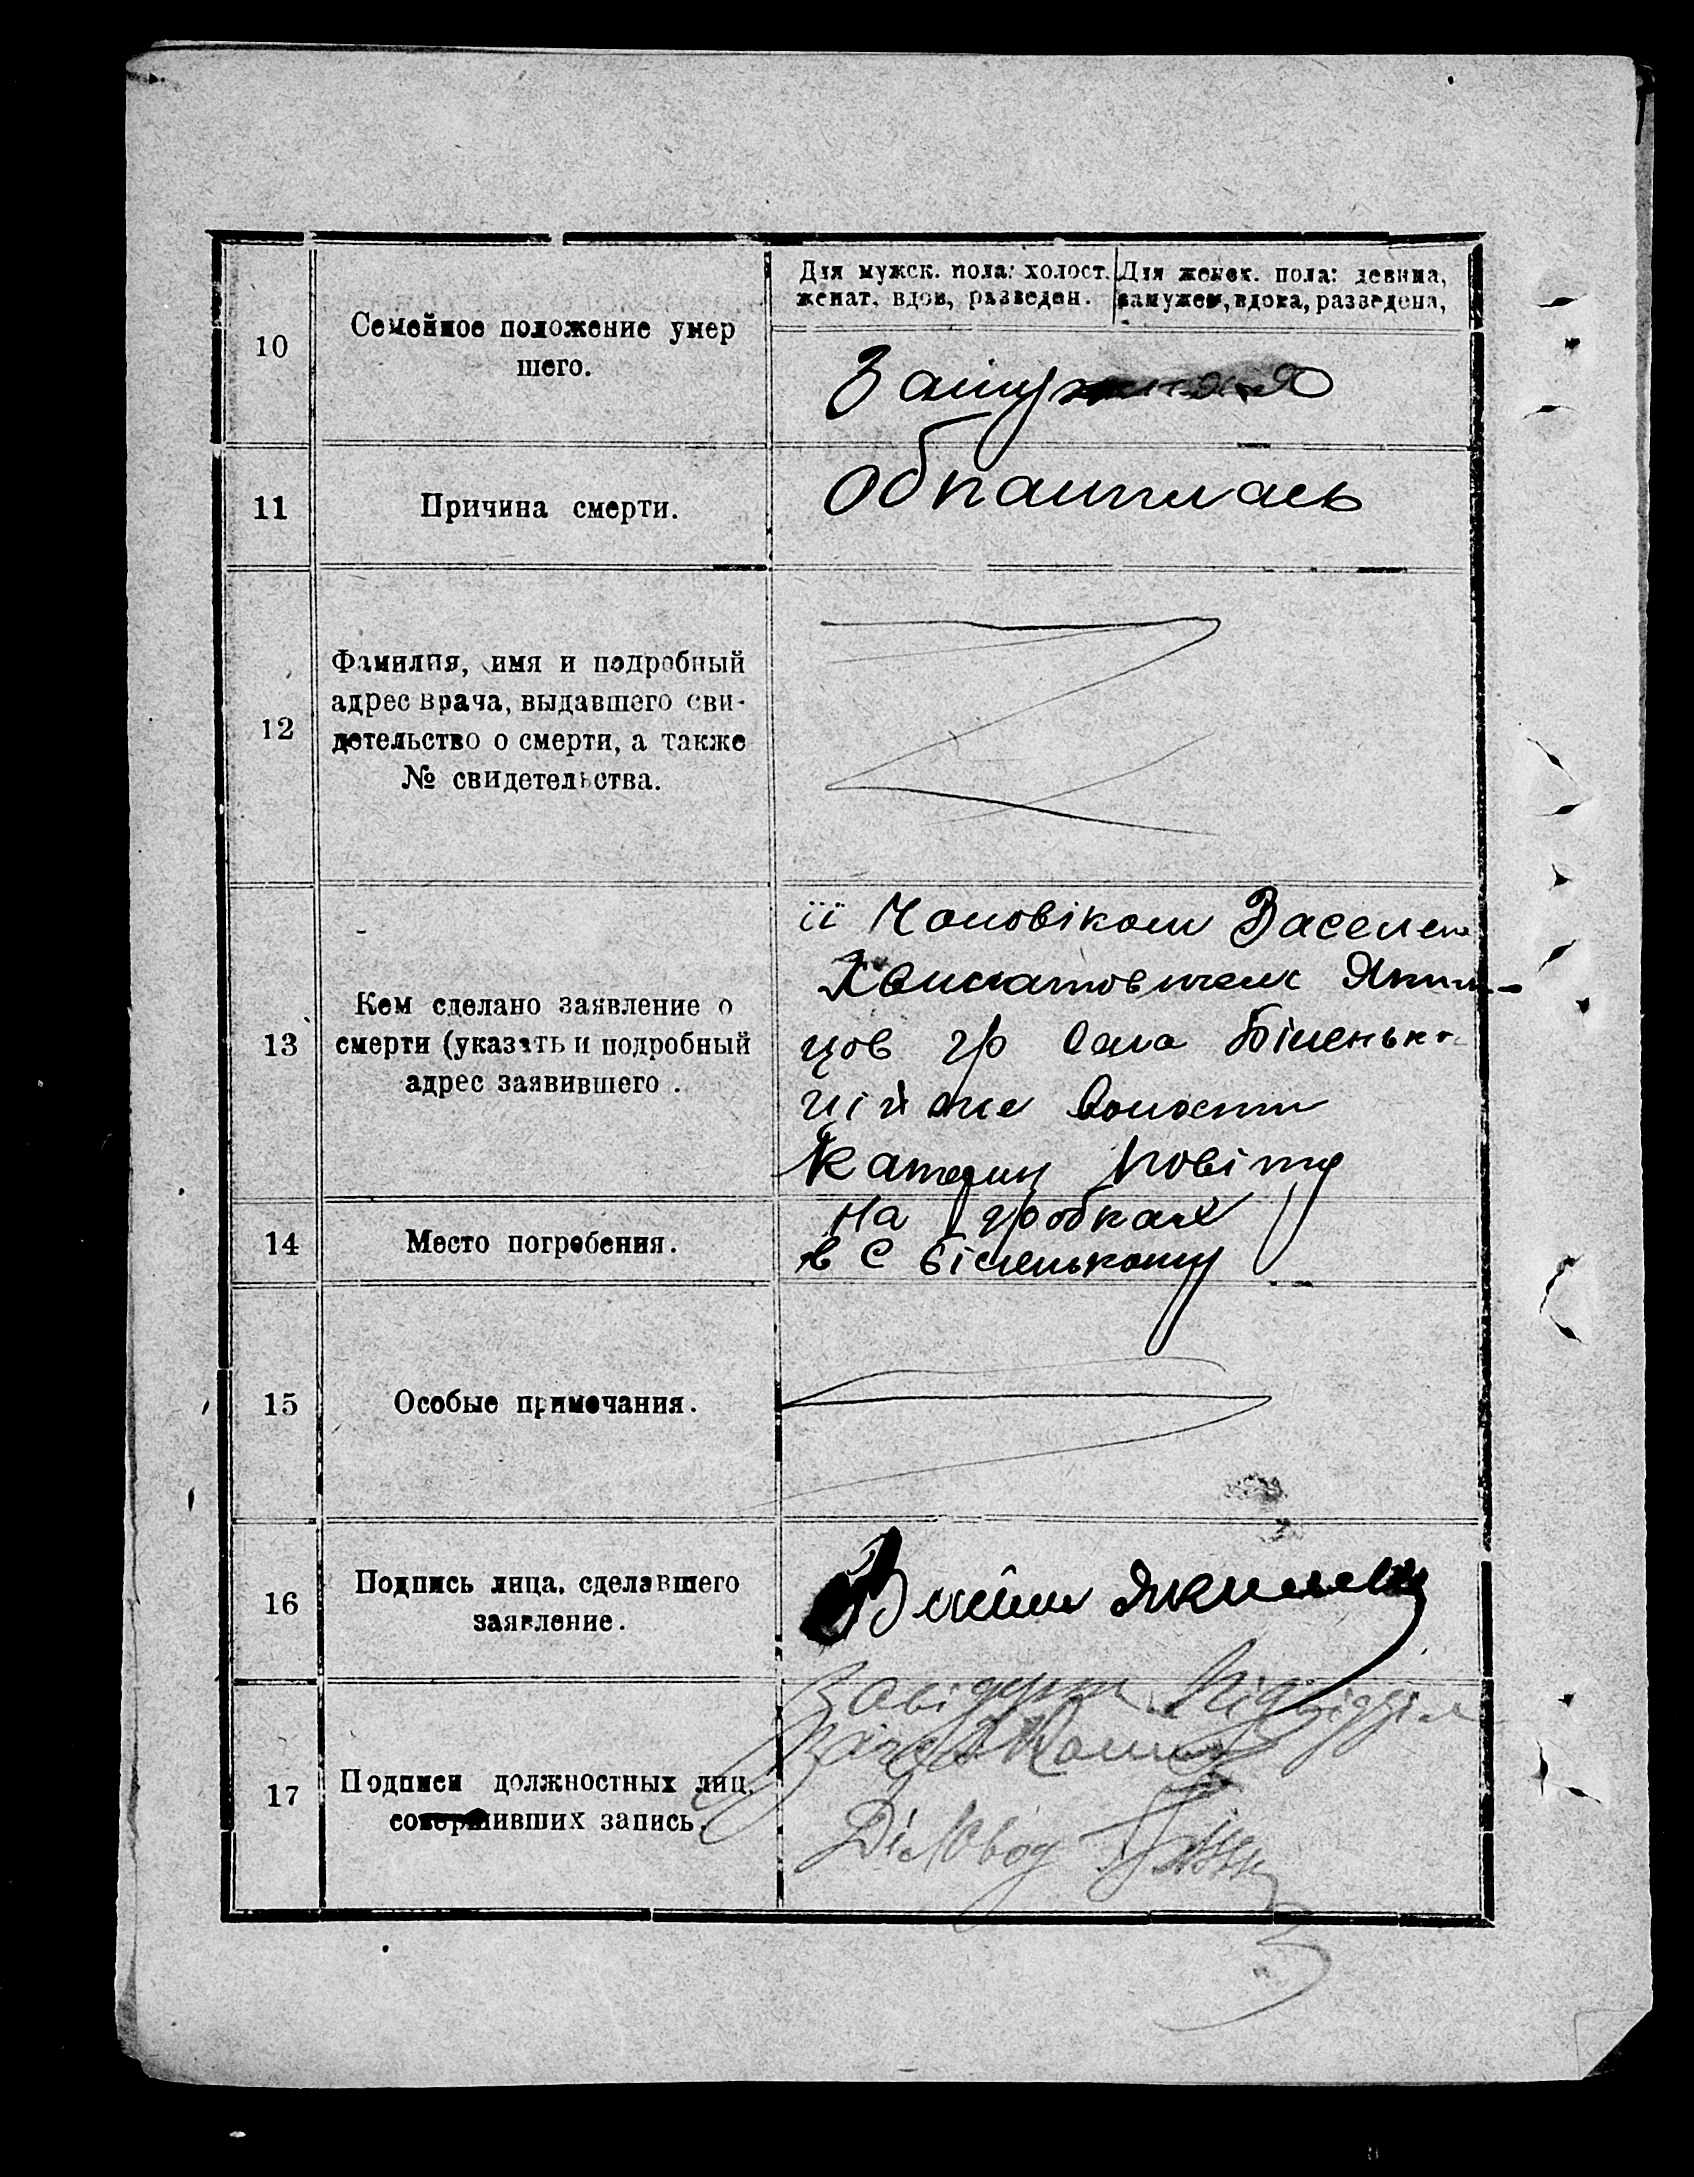 Для мужск. пола: холост. женат, вдов, разведен.
Для женск. пола: девица, замужем, вдова, разведена,
10
Семейное положение умер
шего.
Замужняя
11
Причина смерти.
12
Фамилия, имя и подробный
адрес врача, выдавшего сви-
детельство о смерти, а также
№ свидетельства.
13
Кем сделано заявление о
смерти (указать и подробный
адрес заявившего .
її Чоловіком
цов гр села Біленько
цій же волости
Катерин повіту
14
Место погребения.
на гробках
в С Біленькому
15
Особые примечания.
16
Подпись лица, сделавшего
заявление.
17
Подписи должностных лиц,
совершивших запись.
Завідуюч Підвідділ
Діловод